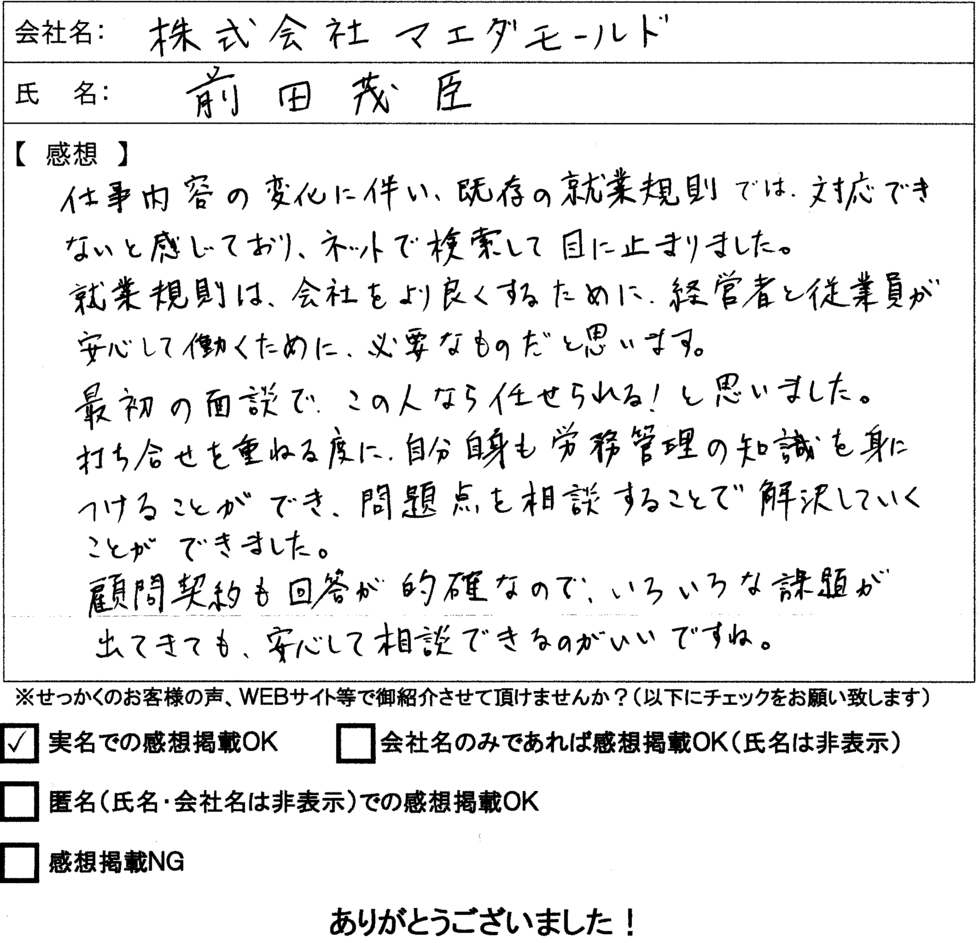 会社名： 株式会社 マエダモールド
氏　名： 前田茂臣
【 感想 】
仕事内容の変化に伴い、既存の就業規則では、対応でき
ないと感じており、ネットで検索して目に止まりました。
就業規則は、会社をより良くするために、経営者と従業員が
安心して働くために、必要なものだと思います。
最初の面談で、この人なら任せられる！と思いました。
打ち合せを重ねる度に、自分自身も労務管理の知識を身に
つけることができ、問題点を相談することで解決していく
ことができました。
顧問契約も回答が的確なので、いろいろな課題が
出てきても、安心して相談できるのがいいですね。
※せっかくのお客様の声、WEBサイト等で御紹介させて頂けませんか？（以下にチェックをお願い致します）
✓ 実名での感想掲載OK　会社名のみであれば感想掲載OK（氏名は非表示）
匿名（氏名・会社名は非表示）での感想掲載OK
感想掲載NG
ありがとうございました！